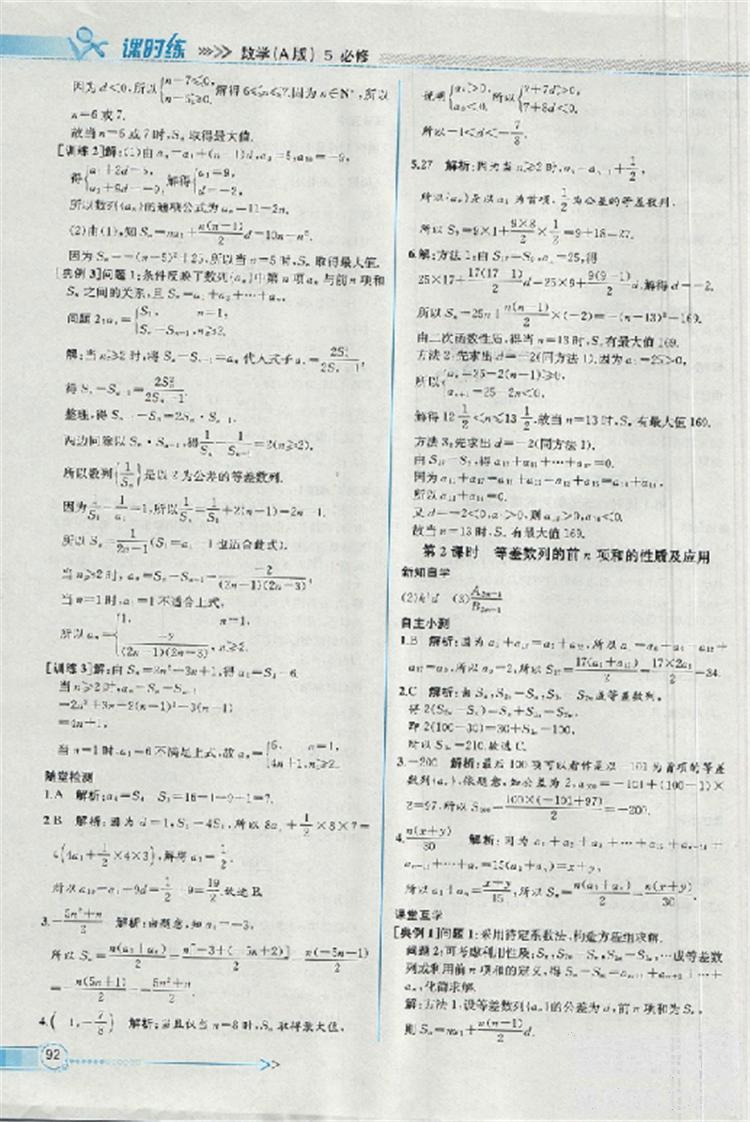 课时练 数学(A版) 5 必修
因为d<0,所以{n-7≤0, n-5≥0. 解得6≤n≤7.因为n∈N*,所以
n=6或7.
故当n=6或7时,Sₙ取得最大值.
[训练2]解:(1)由aₙ=a₁+(n-1)d,a₃=5,a₁₀=-9,
得 解得{a₁=9, d=-2.
所以数列{aₙ}的通项公式为aₙ=11-2n.
(2)由(1),知Sₙ=na₁+n(n-1)/2 d=10n-n².
因为Sₙ=-(n-5)²+25,所以当n=5时,Sₙ取得最大值.
[典例3]问题1:条件反映了数列{aₙ}中第n项aₙ与前n项和
Sₙ之间的关系,且Sₙ=a₁+a₂+…+aₙ.
问题2:aₙ={S₁, n=1, Sₙ-Sₙ₋₁,n≥2.
解:当n≥2时,将Sₙ-Sₙ₋₁=aₙ代入式子aₙ=2Sₙ²/(2Sₙ-1),
得Sₙ-Sₙ₋₁=2Sₙ²/(2Sₙ-1)
整理,得Sₙ₋₁-Sₙ=2Sₙ·Sₙ₋₁,
两边同除以Sₙ·Sₙ₋₁,得1/Sₙ-1/Sₙ₋₁=2(n≥2).
所以数列{1/Sₙ}是以2为公差的等差数列.
因为1/S₁=1/a₁=1,所以1/Sₙ=1/S₁+2(n-1)=2n-1.
所以Sₙ=1/(2n-1)(S₁=a₁=1也适合此式).
当n≥2时,aₙ=Sₙ-Sₙ₋₁=-2/((2n-1)(2n-3)),
当n=1时,a₁=1不适合上式,
所以aₙ={1, n=1, -2/((2n-1)(2n-3)),n≥2.
[训练3]解:由Sₙ=2n²+3n+1,得a₁=S₁=6.
当n≥2时,aₙ=Sₙ-Sₙ₋₁
=4n+1,
当n=1时,a₁=6不满足上式,故aₙ={6, n=1, 4n+1,n≥2.
随堂检测
1.A 解析:a₄=S₄-S₃=16-1-9+1=7.
2.B 解析:因为d=1,S₈=4S₄,所以8a₁+1/2×8×7=
4(4a₁+1/2×4×3),解得a₁=1/2.
所以a₁₀=a₁+9d=1/2+9=19/2.故选B.
3.-(5n²+n)/2 解析:由题意,知a₁=-3,
所以Sₙ=n(a₁+aₙ)/2=n[-3+(-5n+2)]/2=n(-5n-1)/2
=-n(5n+1)/2=-(5n²+n)/2
4.(-1,-7/8) 解析:当且仅当n=8时,Sₙ取得最大值,
92
说明{a₈>0, a₉<0. 所以{7+7d>0, 7+8d<0.
所以-1<d<-7/8.
5.27 解析:因为当n≥2时,aₙ=aₙ₋₁+1/2,
所以{aₙ}是以a₁为首项,1/2为公差的等差数列.
所以S₉=9×1+(9×8)/2×1/2=9+18=27.
6.解:方法1:由S₁₇=S₉,a₁=25,得
25×17+17(17-1)/2 d=25×9+9(9-1)/2 d.解得d=-2.
所以Sₙ=25n+n(n-1)/2×(-2)=-(n-13)²+169.
由二次函数性质,得当n=13时,Sₙ有最大值169.
方法2:先求出d=-2(同方法1).因为a₁=25>0,
所以{aₙ=25-2(n-1)≥0, aₙ₊₁=25-2n≤0.
解得12 1/2≤n≤13 1/2.故当n=13时,Sₙ有最大值169.
方法3:先求出d=-2(同方法1).
由S₁₇=S₉,得a₁₀+a₁₁+…+a₁₇=0.
所以a₁₃+a₁₄=0.
又d=-2<0,a₁>0,则a₁₃>0,a₁₄<0.
故当n=13时,Sₙ有最大值169.
第2课时 等差数列的前n项和的性质及应用
新知自学
(2)k²d (3)A₂ₙ₋₁/B₂ₙ₋₁
自主小测
1.B
所以S₁₇=17(a₁+a₁₇)/2=17×2a₉/2=34.
2.C 解析:由Sₙ,S₂ₙ-Sₙ,S₃ₙ-S₂ₙ成等差数列,
得2(S₂ₙ-Sₙ)=Sₙ+S₃ₙ-S₂ₙ,
即2(100-30)=30+S₃ₙ-100,
所以S₃ₙ=210.故选C.
3.-200 解析:最后100项可以看作是以-101为首项的等差
数列{aₙ},依题意,知公差为2,a₁₀₀=-101+(100-1)×
2=97.所以S₁₀₀=100×(-101+97)/2=-200.
4.n(x+y)/30
所以a₁+aₙ=(x+y)/15,所以Sₙ=n(a₁+aₙ)/2=n(x+y)/30.
课堂互学
[典例1]问题1:采用待定系数法,构造方程组求解.
问题2:可考虑利用性质:Sₙ,S₂ₙ-Sₙ,S₃ₙ-S₂ₙ,…成等差数
列或利用前n项和的定义,
化简求解.
解:方法1:设等差数列{aₙ}的公差为d,前n项和为Sₙ,
则Sₙ=na₁+n(n-1)/2 d.